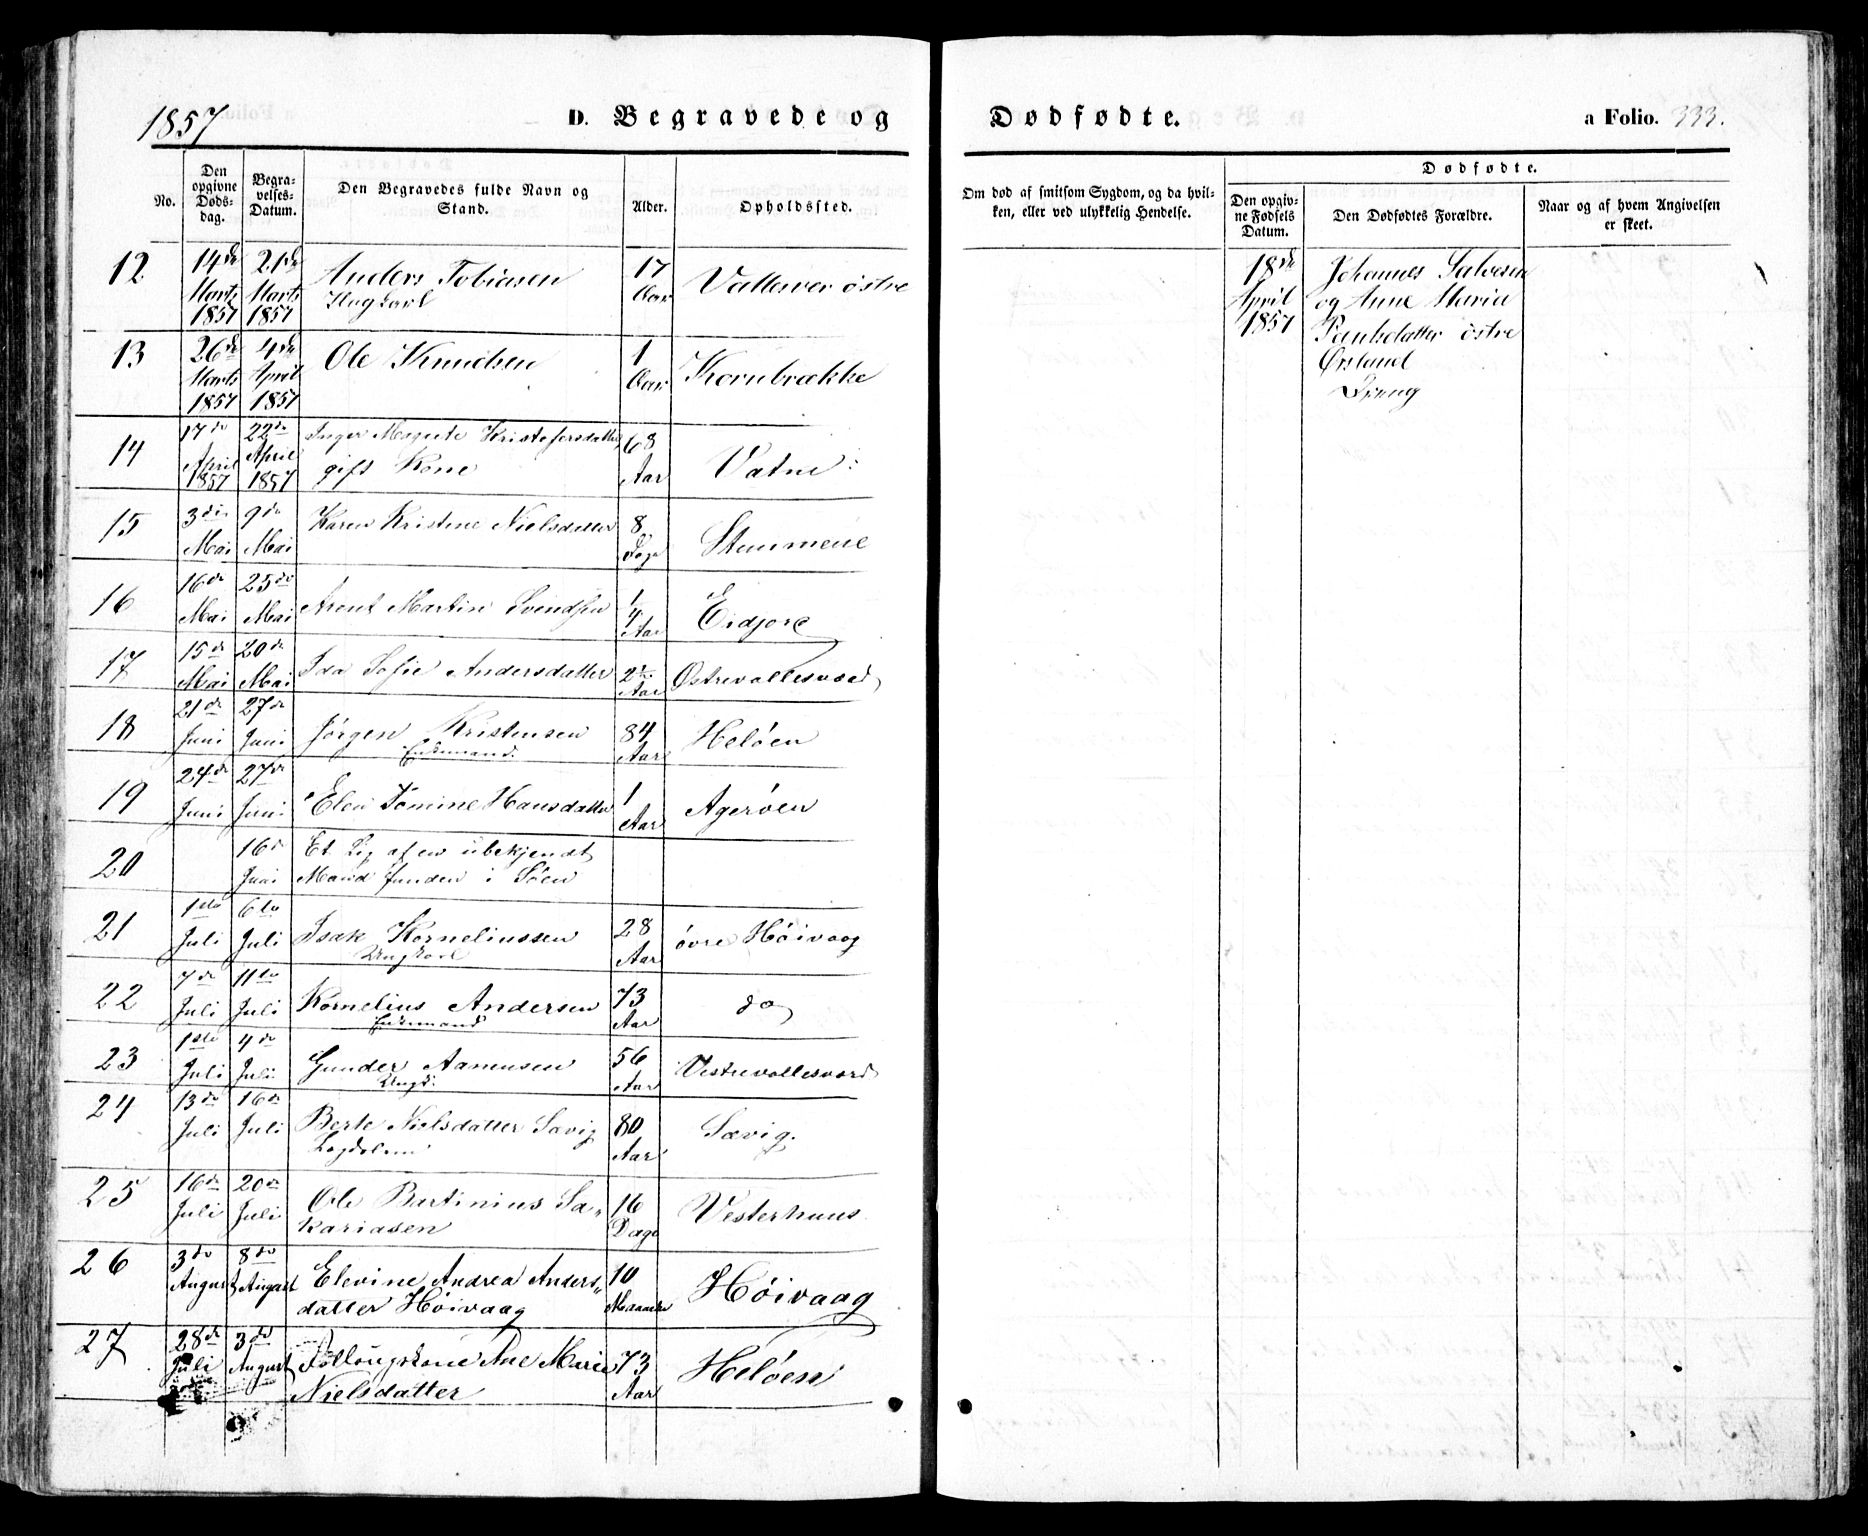 1857
D. Begravede og Dødfødte. a Folio. 333.
No.
Den opgivne Døds-dag.
Begra-velses-Datum.
Den Begravedes fulde Navn og Stand.
Alder.
Opholdssted.
Om død af smitsom Sygdom, og da hvil-ken, eller ved ulykkelig Hendelse.
Dødfødte.
Den opgiv-ne Fødsels Datum.
Den Dødfødtes Forældre.
Naar og af hvem Angivelsen er skeet.
12 14de Marts 1857 21de Marts 1857 Anders Tobiasen 17 Aar Vallesver østre
Ungkarl
13 26de Marts 1857 4de April 1857 Ole Knudsen 1 Aar Kornbrække
14 17de April 1857 22de April 1857 Inger Magrete Kristofersdatter 68 Aar Vatne
gift Kone
15 3die Mai 9de Mai Karen Kristine Nielsdatter 8 Dage Stemmene
16 16de Mai 25de Mai Arent Martin Svendsen 1/4 Aar Eidjore
17 15de Mai 20de Mai Ida Sofie Andersdatter 2 Aar Østrevallesværd
18 21de Juni 27de Juni Jørgen Kristensen 84 Aar Heløen
Enkemand
19 24de Juni 27de Juni Elen Tomine Hansdatter 1 Aar Agerøen
20 16de Juni Et Lig af en ubekjendt
Mand funden i Søen
21 1ste Juli 6te Juli Isak Korneliussen 28 Aar øvre Høivaag
Ungkarl
22 7de Juli 11te Juli Kornelius Andersen 73 Aar do
Enkemand
23 1ste Juli 4de Juli Gunder Aamusen 56 Aar Vestrevallesværd
Ungk.
24 13de Juli 16de Juli Berte Nielsdatter Sævig 80 Aar Sævig.
25 16de Juli 20de Juli Ole Bartinius Sa-
kariasen 16 Dage Vesterhuus
26 3de August 8de August Elevine Andrea Anders-
datter Høivaag 10 Maaneder Høivaag
27 28de Juli 3de August Føllougskone Ane Marie 73 Aar Heløen
Nielsdatter
18de April 1857
Johannes Salvesen
og Anne Maria
Paulsdatter østre
Ørsland
Dreng